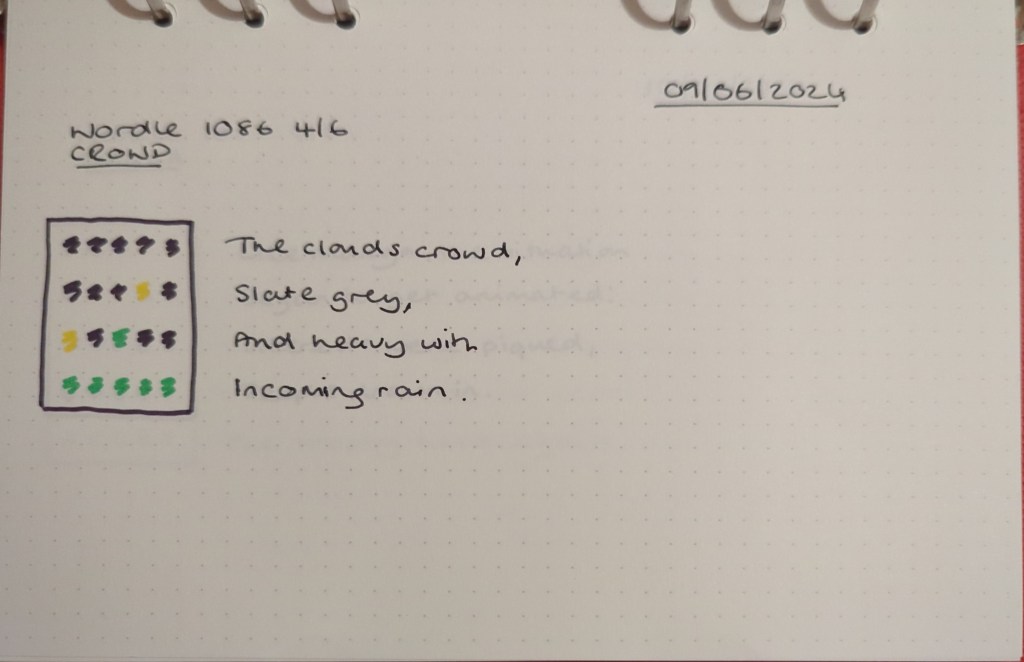 09/06/2024
Wordle 1086 4/6
CROWD
The clouds crowd,
Slate grey,
And heavy with
Incoming rain.